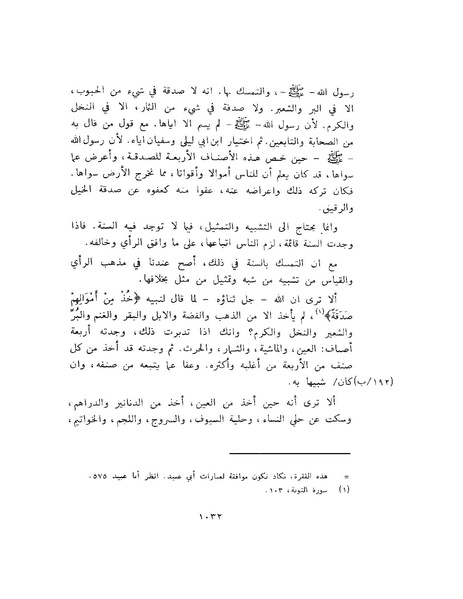 رسول الله - ﷺ -، والتمسك بها. انه لا صدقة في شيء من الحبوب،
الا في البر والشعير. ولا صدقة في شيء من الثمار، الا في النخل
والكرم. لأن رسول الله - ﷺ - لم يسم الا اياها. مع قول من قال به
من الصحابة والتابعين. ثم اختيار ابن ابي ليلى وسفيان اياه. لأن رسول الله
- ﷺ - حين خص هذه الأصناف الأربعة للصدقة، وأعرض عما
سواها، قد كان يعلم أن للناس أموالا وأقواتا، مما تخرج الأرض سواها.
فكان تركه ذلك واعراضه عنه، عفوا منه كعفوه عن صدقة الخيل
والرقيق.
وانما يحتاج الى التشبيه والتمثيل، فيما لا توجد فيه السنة. فاذا
وجدت السنة قائمة، لزم الناس اتباعها، على ما وافق الرأي وخالفه.
مع ان التمسك بالسنة في ذلك، أصح عندنا في مذهب الرأي
والقياس من تشبيه من شبه وتمثيل من مثل بخلافها.
ألا ترى ان الله - جل ثناؤه - لما قال لنبيه ﴿خُذْ مِنْ أَمْوَالِهِمْ
صَدَقَةً﴾(١)، لم يأخذ الا من الذهب والفضة والابل والبقر والغنم والبُرِّ
والشعير والنخل والكرم؟ وانك اذا تدبرت ذلك، وجدته أربعة
أصناف: العين، والماشية، والثمار، والحرث. ثم وجدته قد أخذ من كل
صنف من الأربعة من أغلبه وأكثره. وعفا عما يتبعه من صنفه، وان
(١٩٢/ب) كان/ شبيها به.
ألا ترى أنه حين أخذ من العين، أخذ من الدنانير والدراهم،
وسكت عن حلي النساء، وحلية السيوف، والسروج، واللجم، والخواتيم،
= هذه الفقرة، تكاد تكون موافقة لعبارات أبي عبيد. انظر أبا عبيد ٥٧٥.
(١) سورة التوبة، ١٠٣.
١٠٣٢